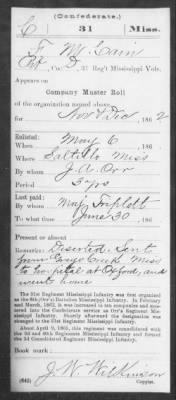 (Confederate.)
C 31 Miss.
F. McCain
Pvt, Co. D, 31 Reg't Mississippi Vols.
Appears on
Company Muster Roll
of the organization named above,
for Nov & Dec, 1862
Enlisted:
When May 6, 186
Where Saltillo Miss
By whom J. A. Orr
Period 3 yrs
Last paid:
By whom Maj Triplett
To what time June 30, 186
Present or absent
Remarks: Deserted. Sent
from Miss
to hospital at Oxford, and
went home
The 31st Regiment Mississippi Infantry was first organized
as the 6th (Orr's) Battalion Mississippi Infantry. In February
and March, 1862, it was increased to ten companies and mustered
into the Confederate service as Orr's Regiment Mississippi
Infantry and shortly afterward the designation was
changed to the 31st Regiment Mississippi Infantry.
About April 9, 1865, this regiment was consolidated with
the 3d and 40th Regiments Mississippi Infantry and formed
the 3d Consolidated Regiment Mississippi Infantry.
Book mark:
J. W. Wilkinson
(642) Copyist.